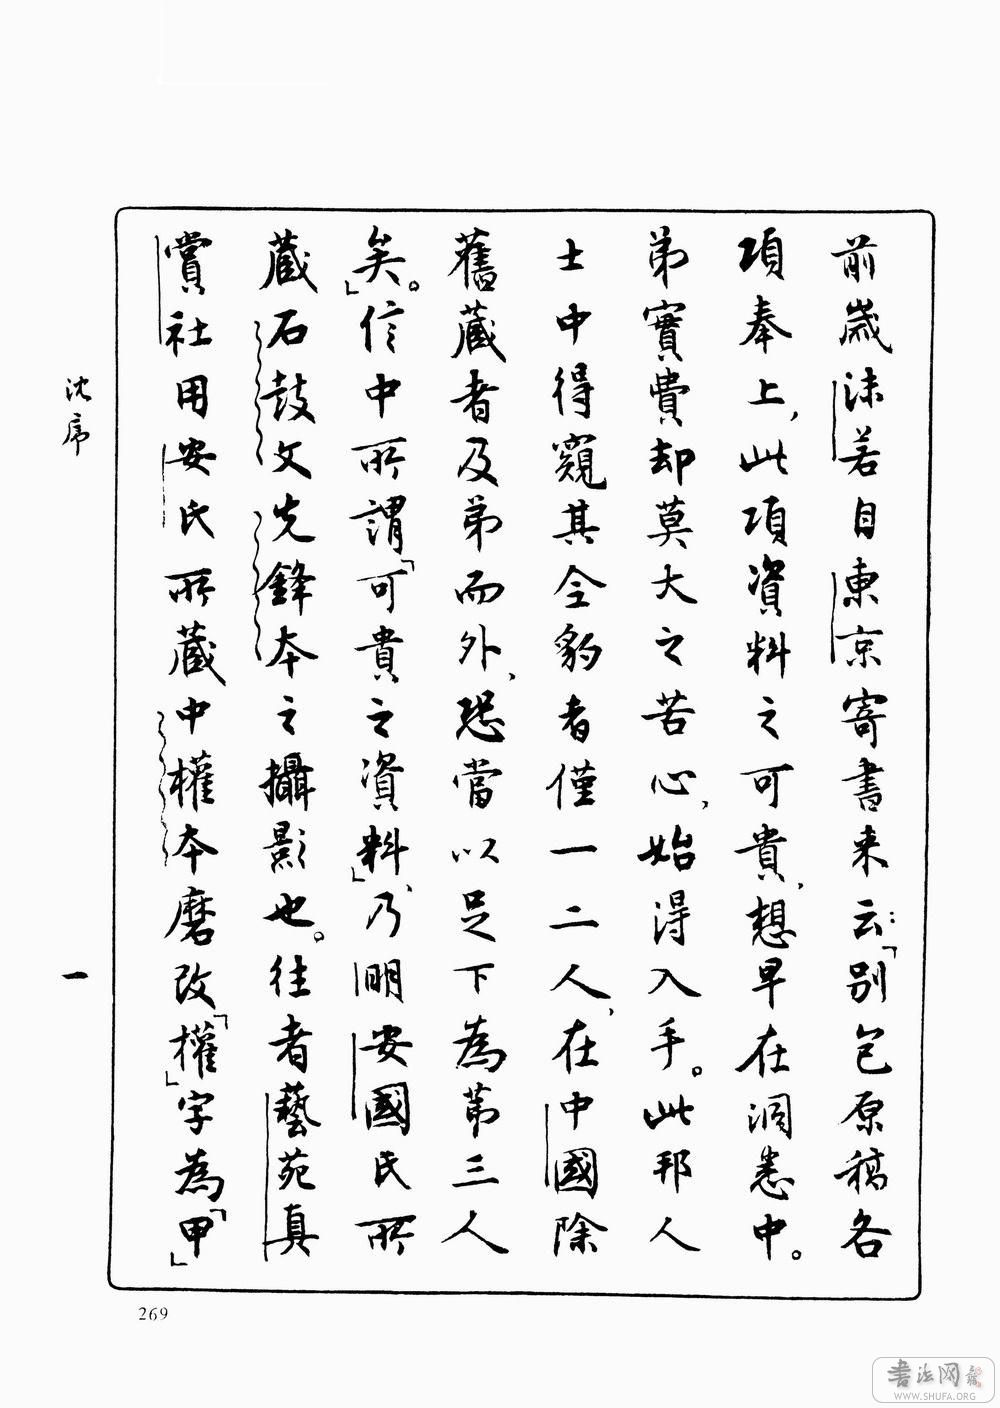 前歲沫若自東京寄書来云：「別包原稿各
項奉上，此項資料之可貴，想早在洞悉中。
弟實費却莫大之苦心，始得入手。此邦人
士中得窺其全豹者僅一二人，在中國除
舊藏者及弟而外，恐當以足下為第三人
矣。」信中所謂「可貴之資料」，乃明安國氏所
藏石鼓文先鋒本之攝影也。往者藝苑真
賞社用安氏所藏中權本磨改「權」字為「甲」
沈序
一
269
书法网
WWW.SHUFA.ORG